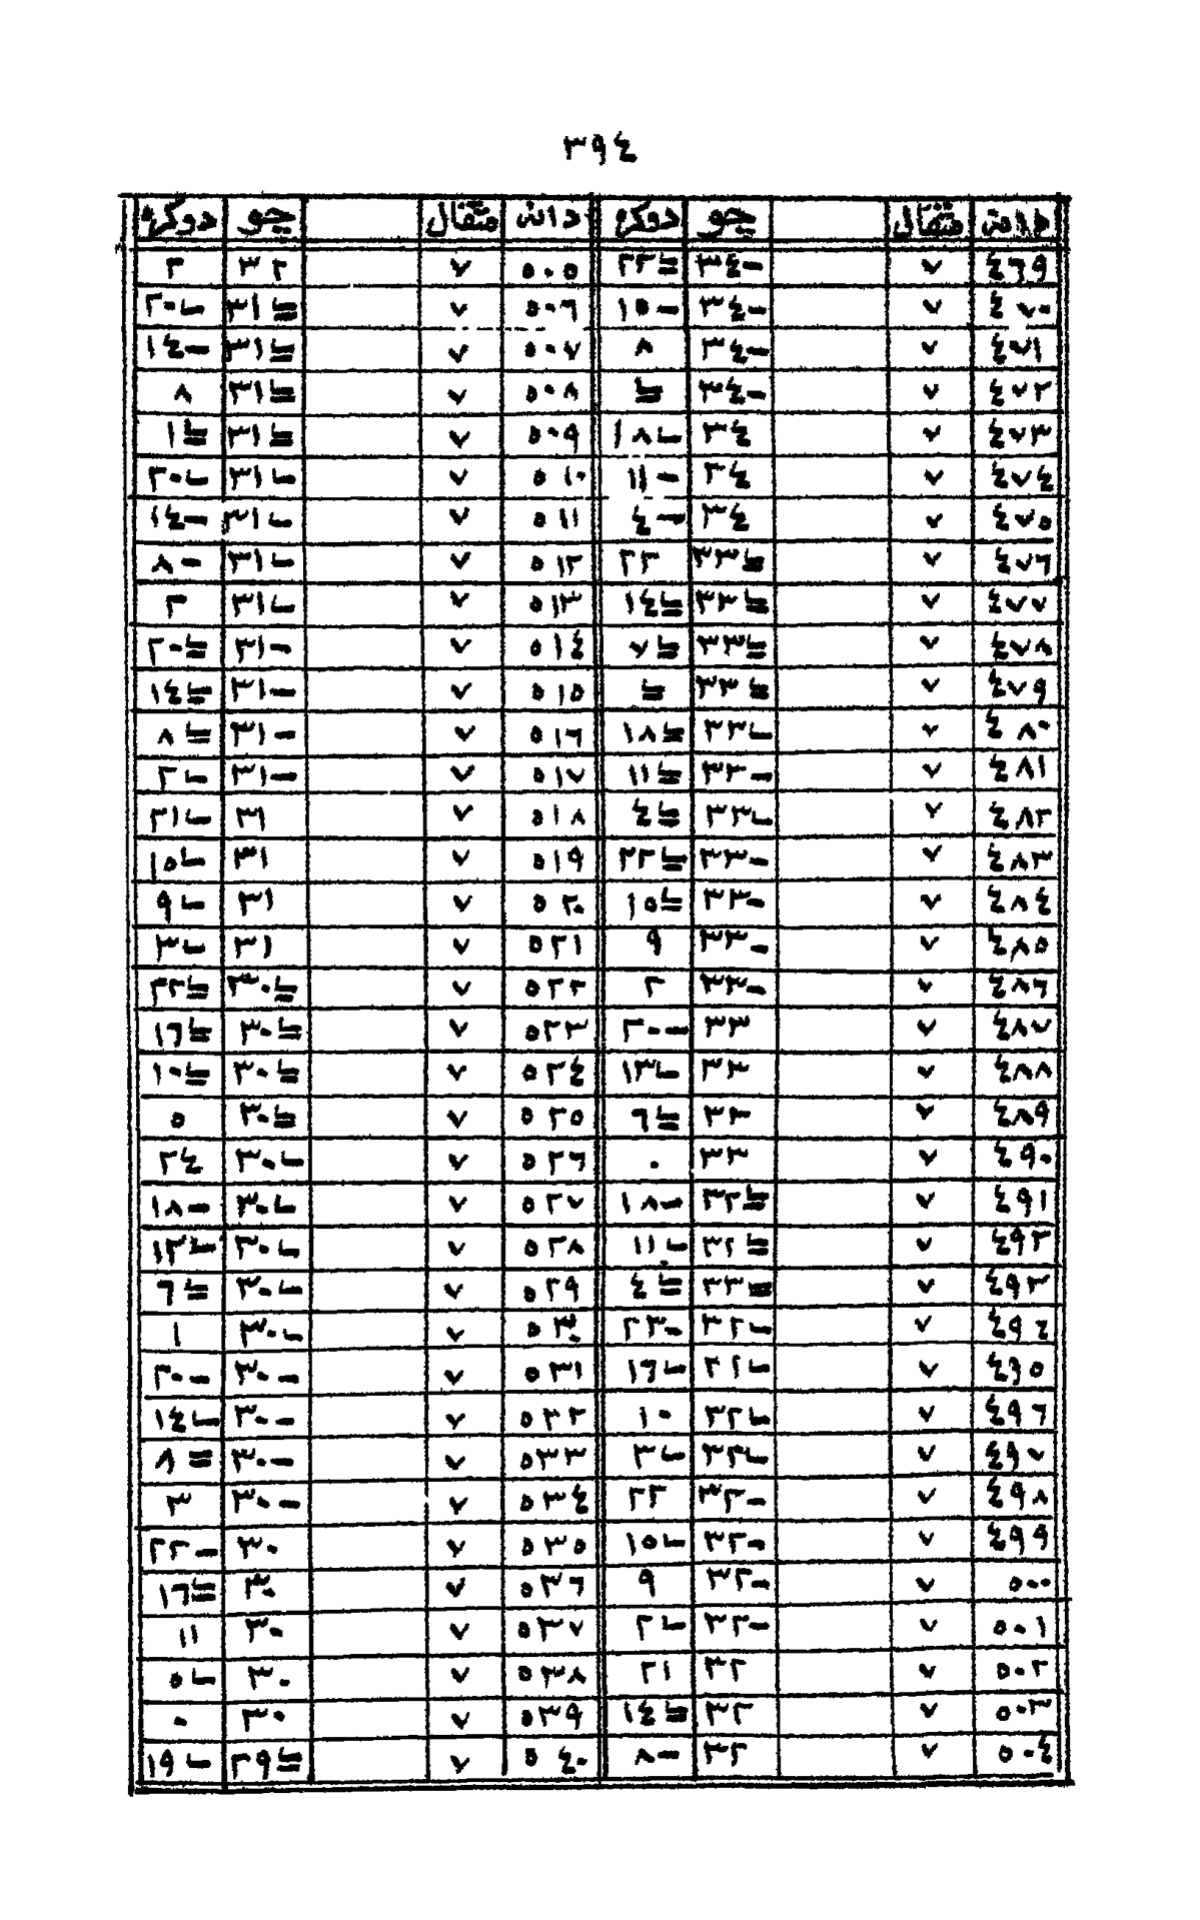 ٣٩٤
دانه مثقال چو دوکره دانه مثقال چو دوکره
٤٦٩ ٧ ٣٤- ٢٢= ٥٠٥ ٧ ٣٢ ٢
٤٧٠ ٧ ٣٤- ١٥- ٥٠٦ ٧ ٣١= ٢٠ـ
٤٧١ ٧ ٣٤- ٨ ٥٠٧ ٧ ٣١= ١٤-
٤٧٢ ٧ ٣٤- = ٥٠٨ ٧ ٣١= ٨
٤٧٣ ٧ ٣٤ ١٨ـ ٥٠٩ ٧ ٣١= ١=
٤٧٤ ٧ ٣٤ ١١- ٥١٠ ٧ ٣١ـ ٢٠ـ
٤٧٥ ٧ ٣٤ ٤- ٥١١ ٧ ٣١ـ ١٤-
٤٧٦ ٧ ٣٣= ٢٢ ٥١٢ ٧ ٣١ـ ٨-
٤٧٧ ٧ ٣٣= ١٤= ٥١٣ ٧ ٣١ـ ٢
٤٧٨ ٧ ٣٣= ٧= ٥١٤ ٧ ٣١- ٢٠=
٤٧٩ ٧ ٣٣= = ٥١٥ ٧ ٣١- ١٤=
٤٨٠ ٧ ٣٣ـ ١٨= ٥١٦ ٧ ٣١- ٨=
٤٨١ ٧ ٣٣- ١١= ٥١٧ ٧ ٣١- ٢ـ
٤٨٢ ٧ ٣٣ـ ٤= ٥١٨ ٧ ٣١ ٢١ـ
٤٨٣ ٧ ٣٣- ٢٢= ٥١٩ ٧ ٣١ ١٥ـ
٤٨٤ ٧ ٣٣- ١٥= ٥٢٠ ٧ ٣١ ٩ـ
٤٨٥ ٧ ٣٣- ٩ ٥٢١ ٧ ٣١ ٣ـ
٤٨٦ ٧ ٣٣- ٢ ٥٢٢ ٧ ٣٠= ٢٢=
٤٨٧ ٧ ٣٣ ٢٠- ٥٢٣ ٧ ٣٠= ١٦=
٤٨٨ ٧ ٣٣ ١٣ـ ٥٢٤ ٧ ٣٠= ١٠=
٤٨٩ ٧ ٣٣ ٦= ٥٢٥ ٧ ٣٠= ٥
٤٩٠ ٧ ٣٣ ٠ ٥٢٦ ٧ ٣٠ـ ٢٤
٤٩١ ٧ ٣٢= ١٨- ٥٢٧ ٧ ٣٠ـ ١٨-
٤٩٢ ٧ ٣٢= ١١ـ ٥٢٨ ٧ ٣٠ـ ١٢ـ
٤٩٣ ٧ ٣٢= ٤= ٥٢٩ ٧ ٣٠ـ ٦=
٤٩٤ ٧ ٣٢ـ ٢٣- ٥٣٠ ٧ ٣٠ـ ١
٤٩٥ ٧ ٣٢ـ ١٦ـ ٥٣١ ٧ ٣٠- ٢٠-
٤٩٦ ٧ ٣٢ـ ١٠ ٥٣٢ ٧ ٣٠- ١٤ـ
٤٩٧ ٧ ٣٢ـ ٣ـ ٥٣٣ ٧ ٣٠- ٨=
٤٩٨ ٧ ٣٢- ٢٢ ٥٣٤ ٧ ٣٠- ٣
٤٩٩ ٧ ٣٢- ١٥ـ ٥٣٥ ٧ ٣٠ ٢٢-
٥٠٠ ٧ ٣٢- ٩ ٥٣٦ ٧ ٣٠ ١٦=
٥٠١ ٧ ٣٢- ٢ـ ٥٣٧ ٧ ٣٠ ١١
٥٠٢ ٧ ٣٢ ٢١ ٥٣٨ ٧ ٣٠ ٥ـ
٥٠٣ ٧ ٣٢ ١٤= ٥٣٩ ٧ ٣٠ ٠
٥٠٤ ٧ ٣٢ ٨- ٥٤٠ ٧ ٢٩= ١٩ـ